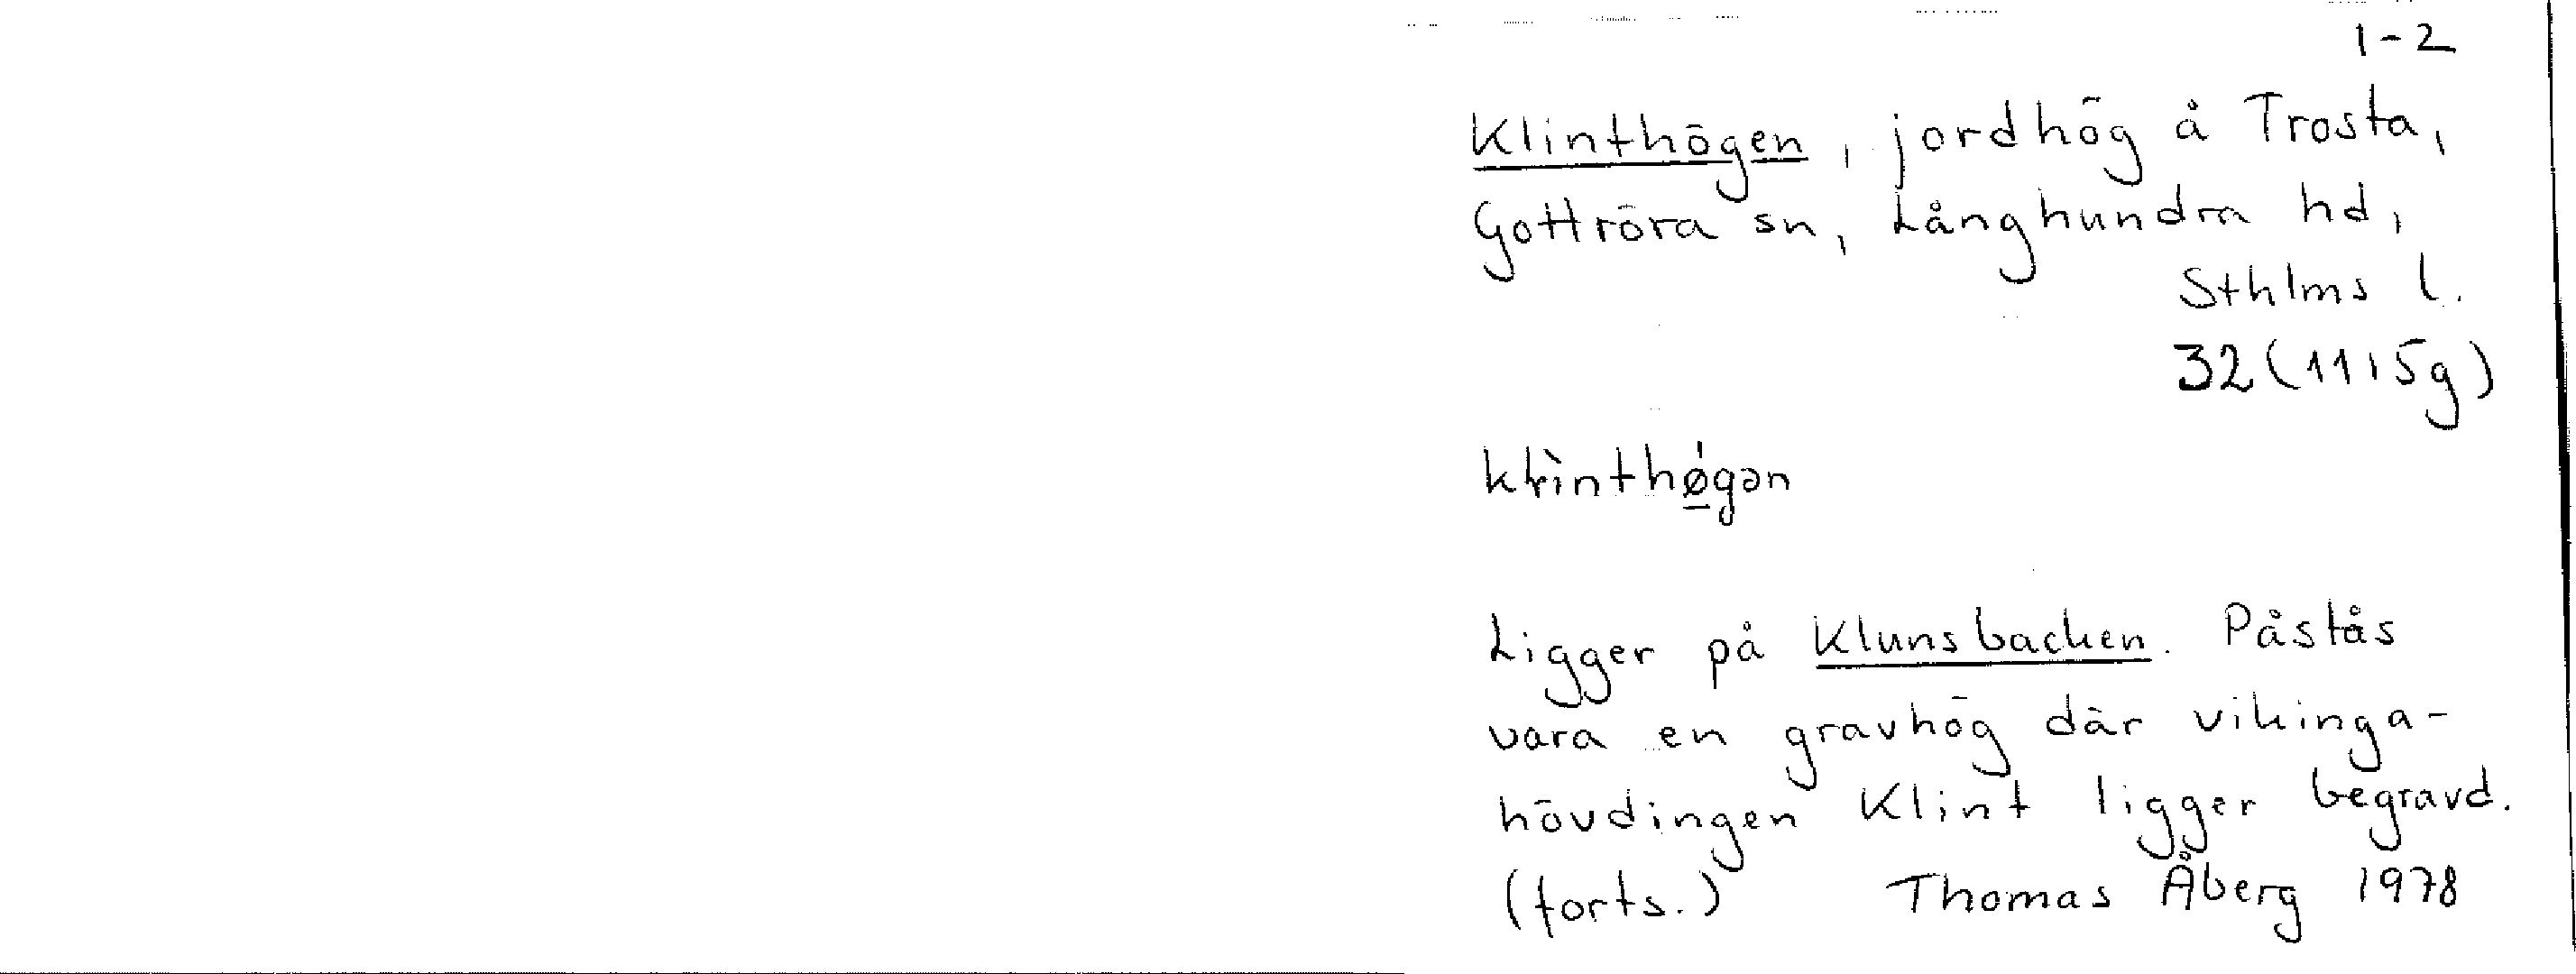 1-2
Klinthögen, jordhög å Trosta,
Gottröra sn, Långhundra hd,
Sthlms l.
32 (11i5g)
Ligger på Klunsbacken. Påstås
vara en gravhög där vikinga-
hövdingen Klint ligger begravd.
(forts.) Thomas Åberg 1978